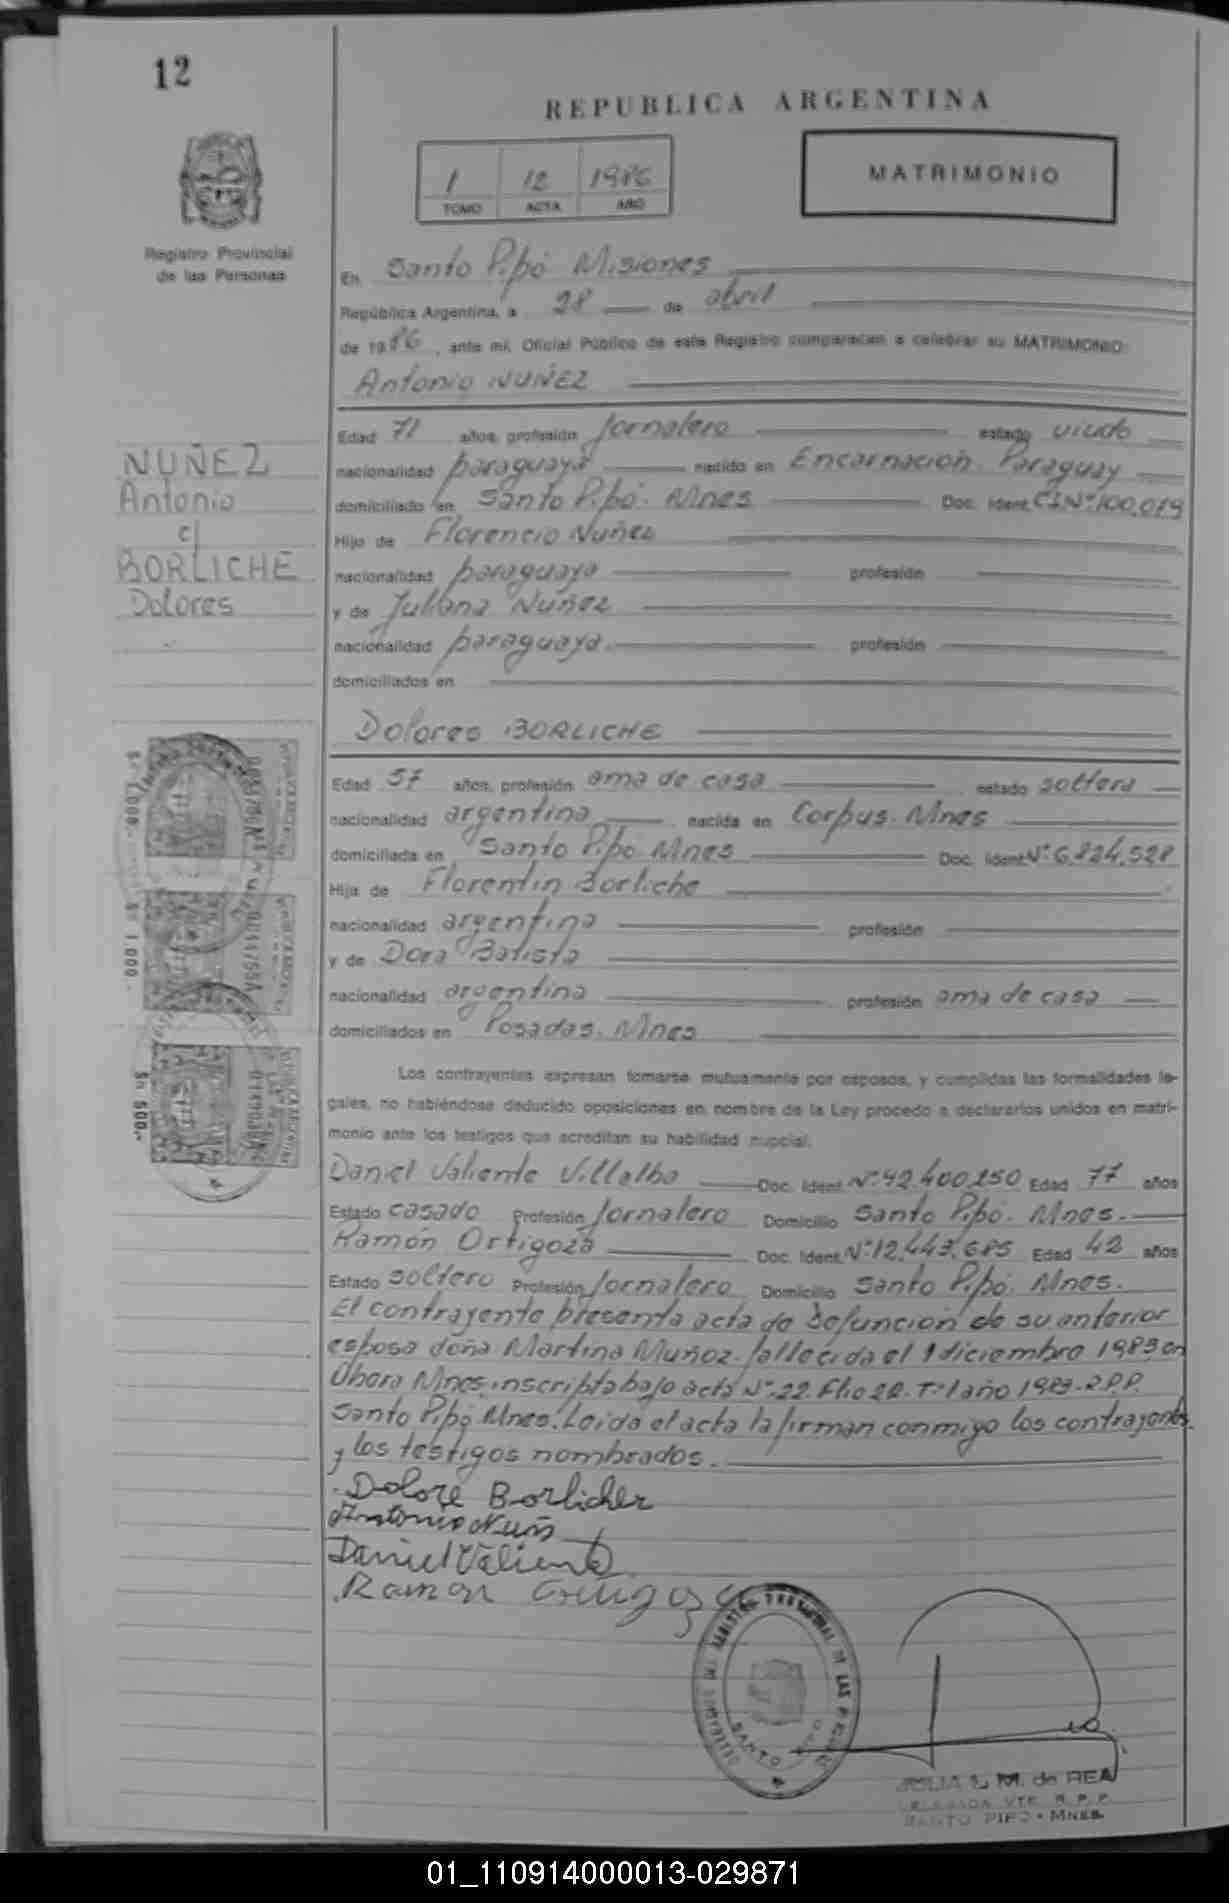 12
REPUBLICA ARGENTINA
1 12 1986
TOMO ACTA AÑO
MATRIMONIO
Registro Provincial
de las Personas
En Santo Pipó Misiones
República Argentina, a 28 de abril
de 1986, ante mí, Oficial Público de este Registro comparecen a celebrar su MATRIMONIO:
Antonio NUÑEZ
Edad 71 años, profesión Jornalero estado viudo
nacionalidad paraguaya nacido en Encarnación. Paraguay
domiciliado en Santo Pipó. Mnes Doc. Ident. C.I.Nº.100.019
Hijo de Florencio Nuñez
nacionalidad paraguaya profesión
y de Juliana Nuñez
nacionalidad paraguaya. profesión
domiciliados en
NUÑEZ
Antonio
c/
BORLICHE
Dolores
Dolores BORLICHE
Edad 57 años, profesión ama de casa estado soltera
nacionalidad argentina nacida en Corpus. Mnes
domiciliada en Santo Pipó Mnes Doc. Ident. Nº.6.824.528
Hija de Florentín Borliche
nacionalidad argentina profesión
y de Dora Batista
nacionalidad argentina profesión ama de casa
domiciliados en Posadas. Mnes
1.000.-
500.-
Los contrayentes expresan tomarse mutuamente por esposos, y cumplidas las formalidades le-
gales, no habiéndose deducido oposiciones en nombre de la Ley procedo a declararlos unidos en matri-
monio ante los testigos que acreditan su habilidad nupcial.
Daniel Valiente Villalba Doc. Ident. Nº.92.400.250 Edad 77 años
Estado casado Profesión Jornalero Domicilio Santo Pipó. Mnes.
Ramón Ortigoza Doc. Ident. Nº.12.443.685 Edad 42 años
Estado soltero Profesión Jornalero Domicilio Santo Pipó. Mnes.
El contrayente presenta acta de defunción de su anterior
esposa doña Martina Muñoz. fallecida el 1 diciembre 1983 en
Obera Mnes. inscripta bajo acta Nº.22. Flio 22. Tº1 año 1983. R.P.P.
Santo Pipó Mnes. Leida el acta la firman conmigo los contrayentes
y los testigos nombrados.
Dolore Borlicher
Antonio Nuñ
Daniel Valiente
Ramon
SANTO PIPO
L. M. de REA
DELEGADA R.P.P.
SANTO PIPO - MNES.
01_110914000013-029871